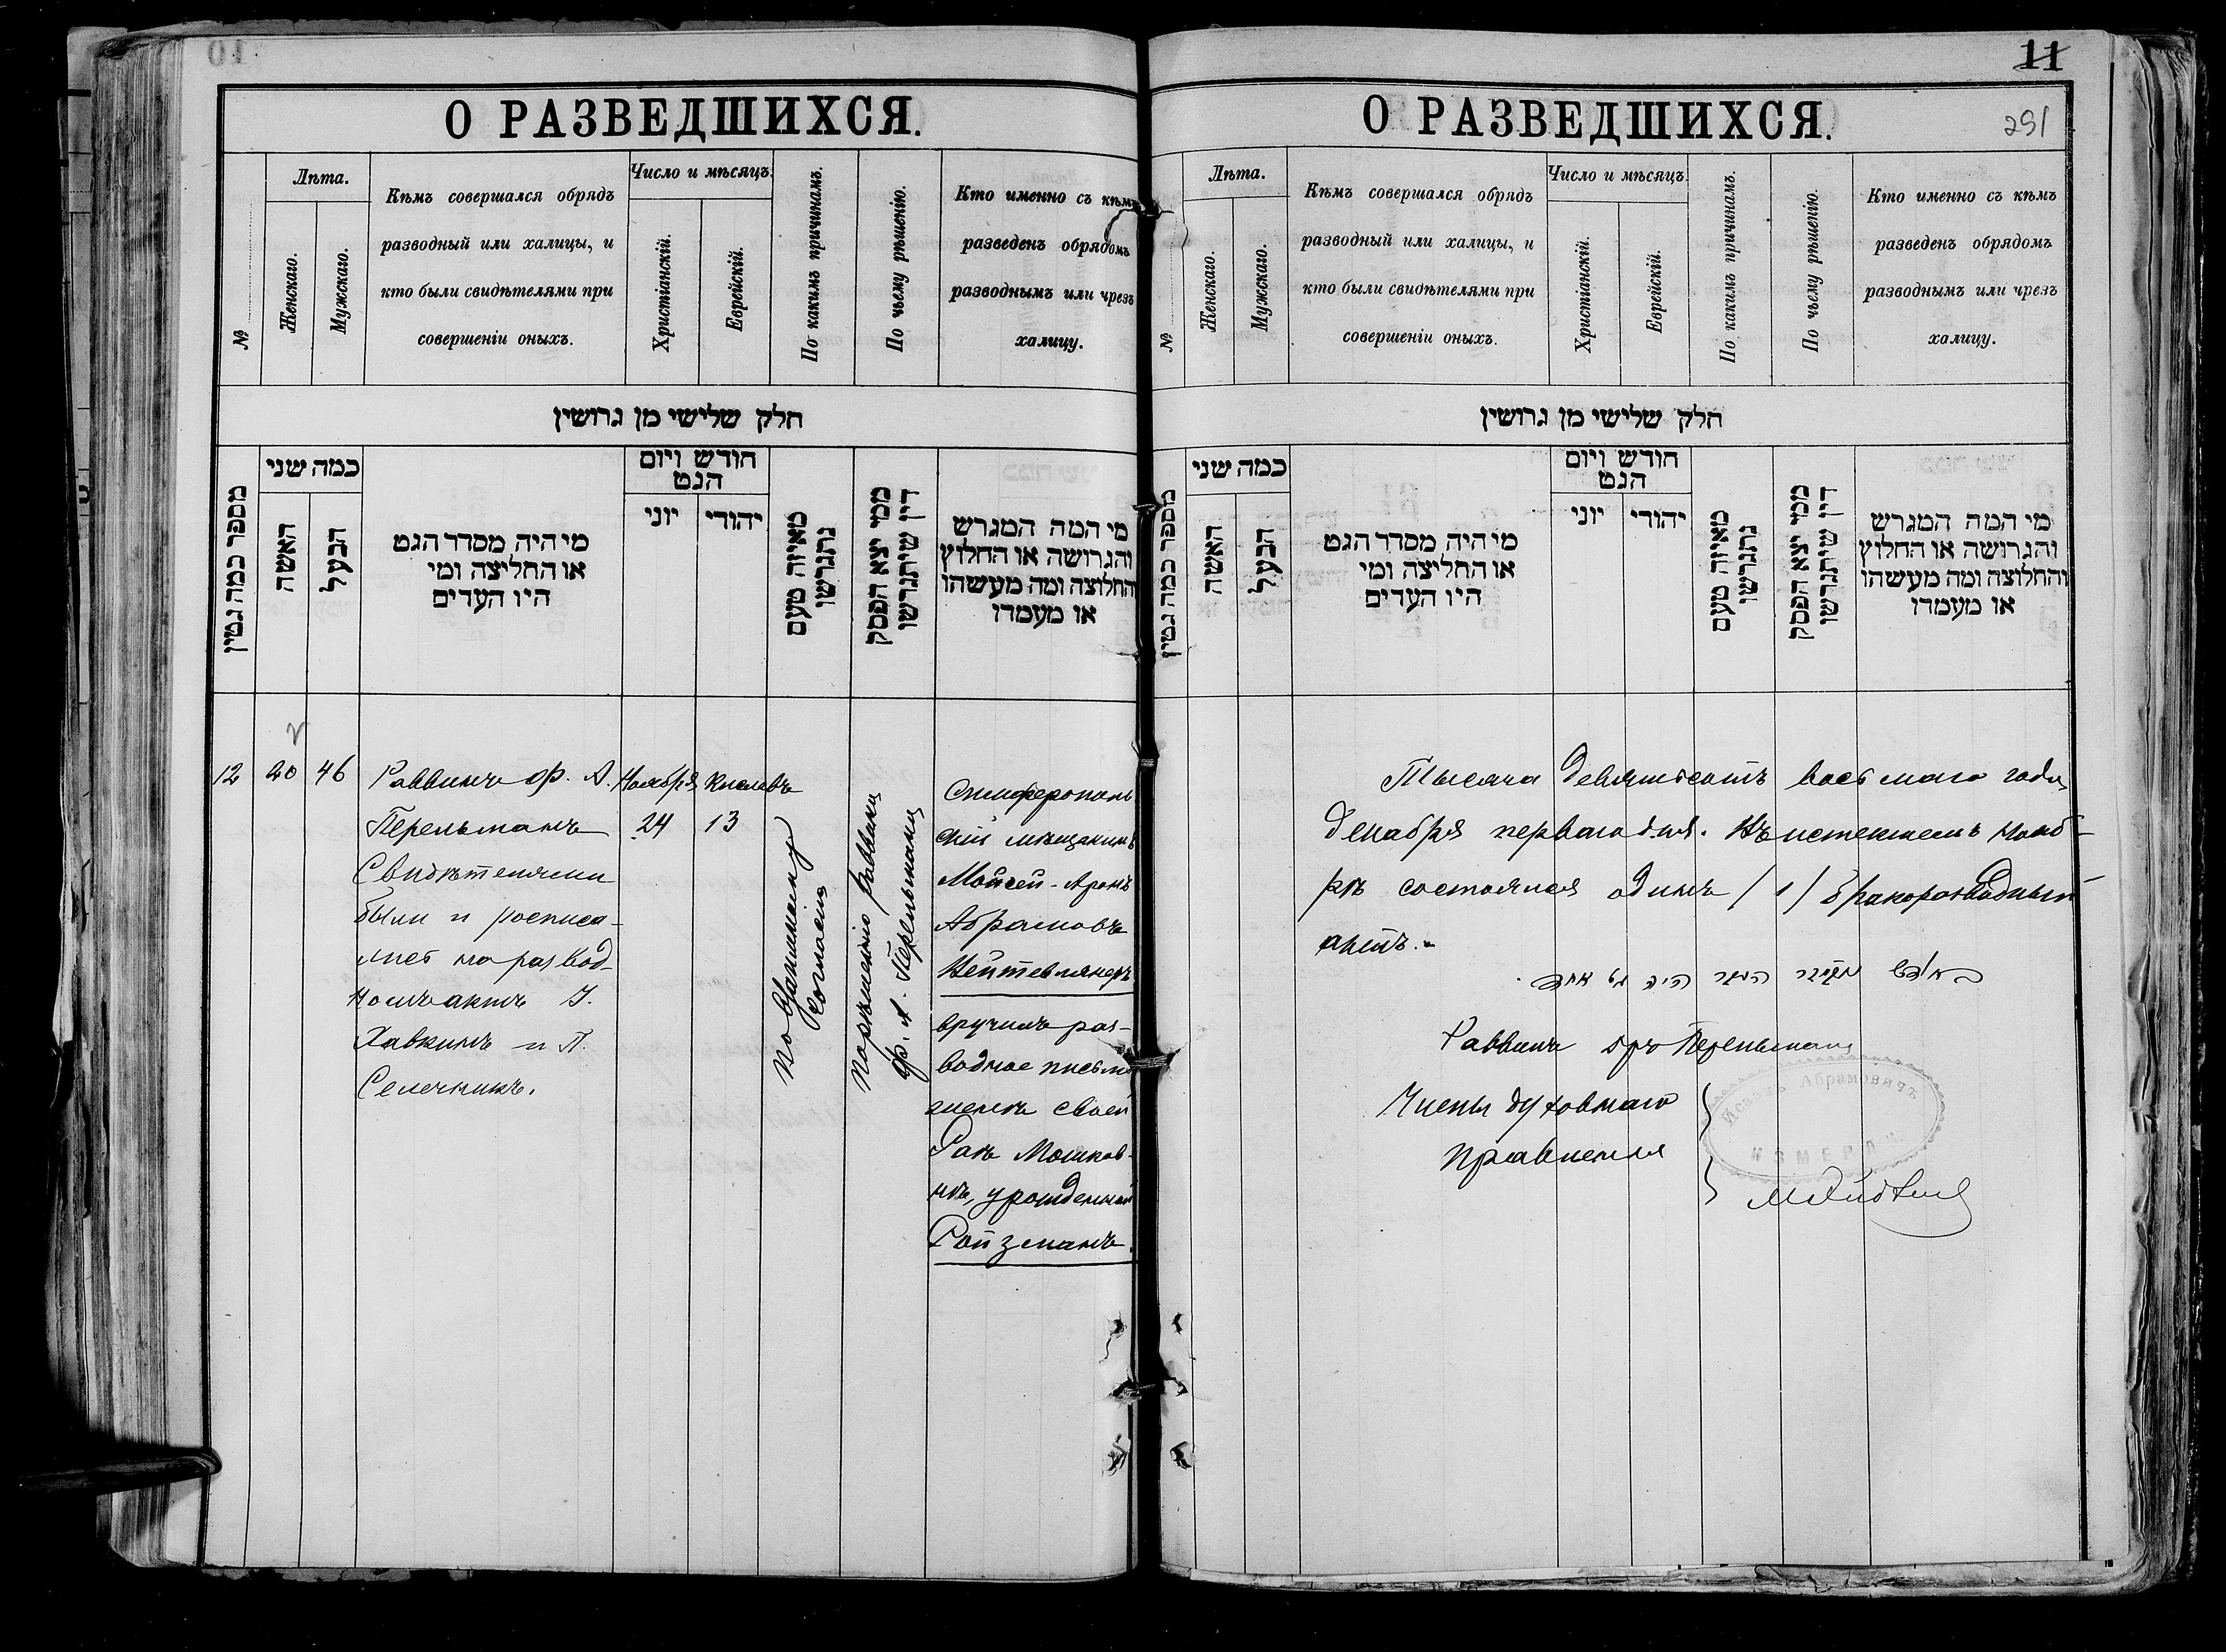 О РАЗВЕДШИХСЯ.
№
Лѣта.
Женскаго.
Мужскаго.
Кѣмъ совершался обрядъ
разводный или халицы, и
кто были свидѣтелями при
совершеніи оныхъ.
Число и мѣсяцъ.
Христіанскій.
Еврейскій.
По какимъ причинамъ.
По чьему рѣшенію.
Кто именно съ кѣмъ
разведенъ обрядомъ
разводнымъ или чрезъ
халицу.
חלק שלישי מן גרושין
מספר כמה גטין
כמה שני
האשה
הבעל
מי היה מסדר הגט
או החליצה ומי
היו העדים
חודש ויום
הגט
יוני
יהודי
מאיזה טעם
נתגרשו
ממי יצא הפסק
דין שיתגרשו
מי המה המגרש
והגרושה או החלוץ
והחלוצה ומה מעשהו
או מעמדו
12
20
46
Раввинъ Ф. А.
Перельманъ
Свидѣтелями
были и росписа-
лись на развод-
номъ актѣ I.
Хавкинъ и П.
Селечникъ.
Ноября
24
Кислевъ
13
По взаимному
согласію
По рѣшенію раввина
Ф. А. Перельмана
Симферополь
скій мѣщанинъ
Мойсей-Аронъ
Абрамовъ
вручилъ раз-
водное письмо
женѣ своей
Рохѣ Мошков-
нѣ, урожденной
Ройзманъ.
11
291
О РАЗВЕДШИХСЯ.
№
Лѣта.
Женскаго.
Мужскаго.
Кѣмъ совершался обрядъ
разводный или халицы, и
кто были свидѣтелями при
совершеніи оныхъ.
Число и мѣсяцъ.
Христіанскій.
Еврейскій.
По какимъ причинамъ.
По чьему рѣшенію.
Кто именно съ кѣмъ
разведенъ обрядомъ
разводнымъ или чрезъ
халицу.
חלק שלישי מן גרושין
מספר כמה גטין
כמה שני
האשה
הבעל
מי היה מסדר הגט
או החליצה ומי
היו העדים
חודש ויום
הגט
יוני
יהודי
מאיזה טעם
נתגרשו
ממי יצא הפסק
דין שיתגרשו
מי המה המגרש
והגרושה או החלוץ
והחלוצה ומה מעשהו
או מעמדו
Тысяча девятьсотъ восьмаго года,
декабря перваго дня. Въ истекшемъ нояб-
рѣ состоялся одинъ /1/ бракоразводный
актъ.
היה גט אחד
Раввинъ Перельманъ
Члены духовнаго
правленія
Исаакъ Абрамовичъ